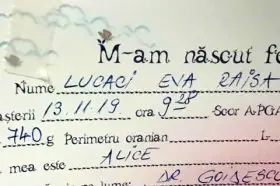 M-am născut fe
Nume LUCACI EVA RAISA
așterii 13.11.19 ora 9 28 Scor APGA
740 g Perimetru cranian L
mea este ALICE
DR.